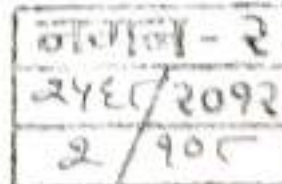 - २
२५६८/२०१२
२/१०८